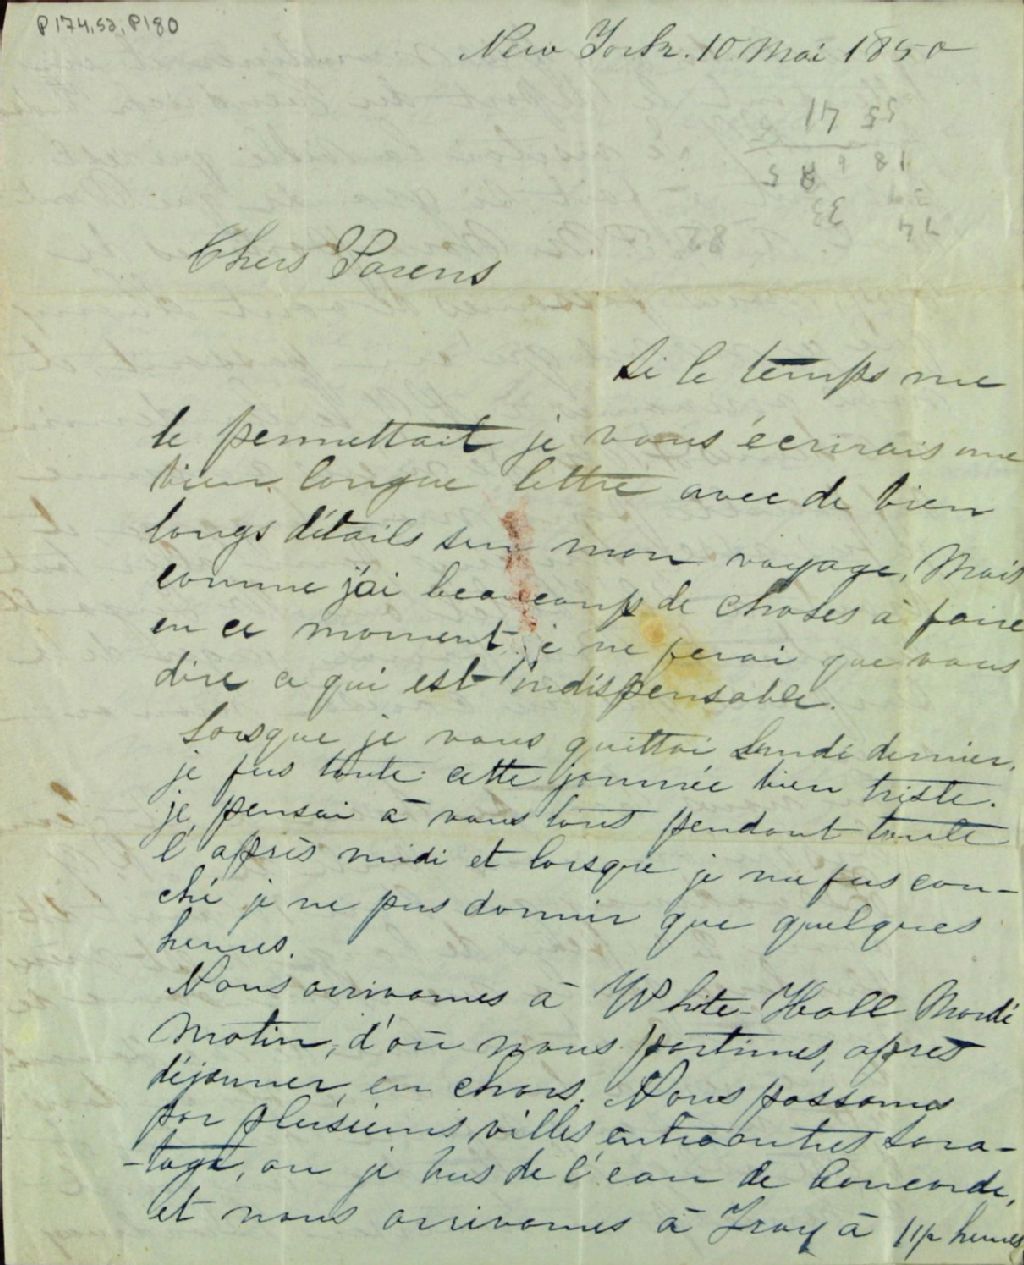 P174,S2,P180
New York. 10 Mai 1850
55 41
18 6 25
33
74
85
Chers Parens
Si le temps me
le permettait je vous écrirais une
bien longue lettre avec de bien
longs détails sur mon voyage, Mais
comme j'ai beaucoup de choses à faire
en ce moment je ne ferai que vous
dire ce qui est indispensable.
Lorsque je vous quittai Lundi dernier,
je fus toute cette journée bien triste.
je pensai à vous tous pendant toute
l'après midi et lorsque je me fus cou-
ché je ne pus dormir que quelques
heures.
Nous arrivames à White-Hall Mardi
matin, d'où nous partimes, apres
déjeuner, en chars. Nous passames
par plusieurs villes entreautres Sara-
-toga, ou je bus de l'eau de Concorde,
et nous arrivames à Troy à 11½ heures